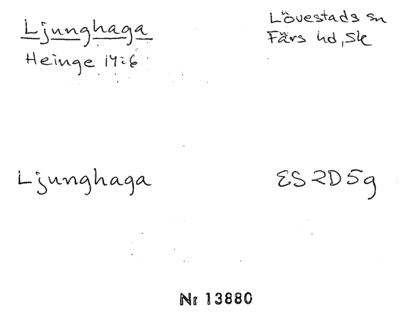 Ljunghaga
Heinge 14:6
Lövestads sn
Färs hd, Sk
Ljunghaga
ES 2D5g
Nr 13880